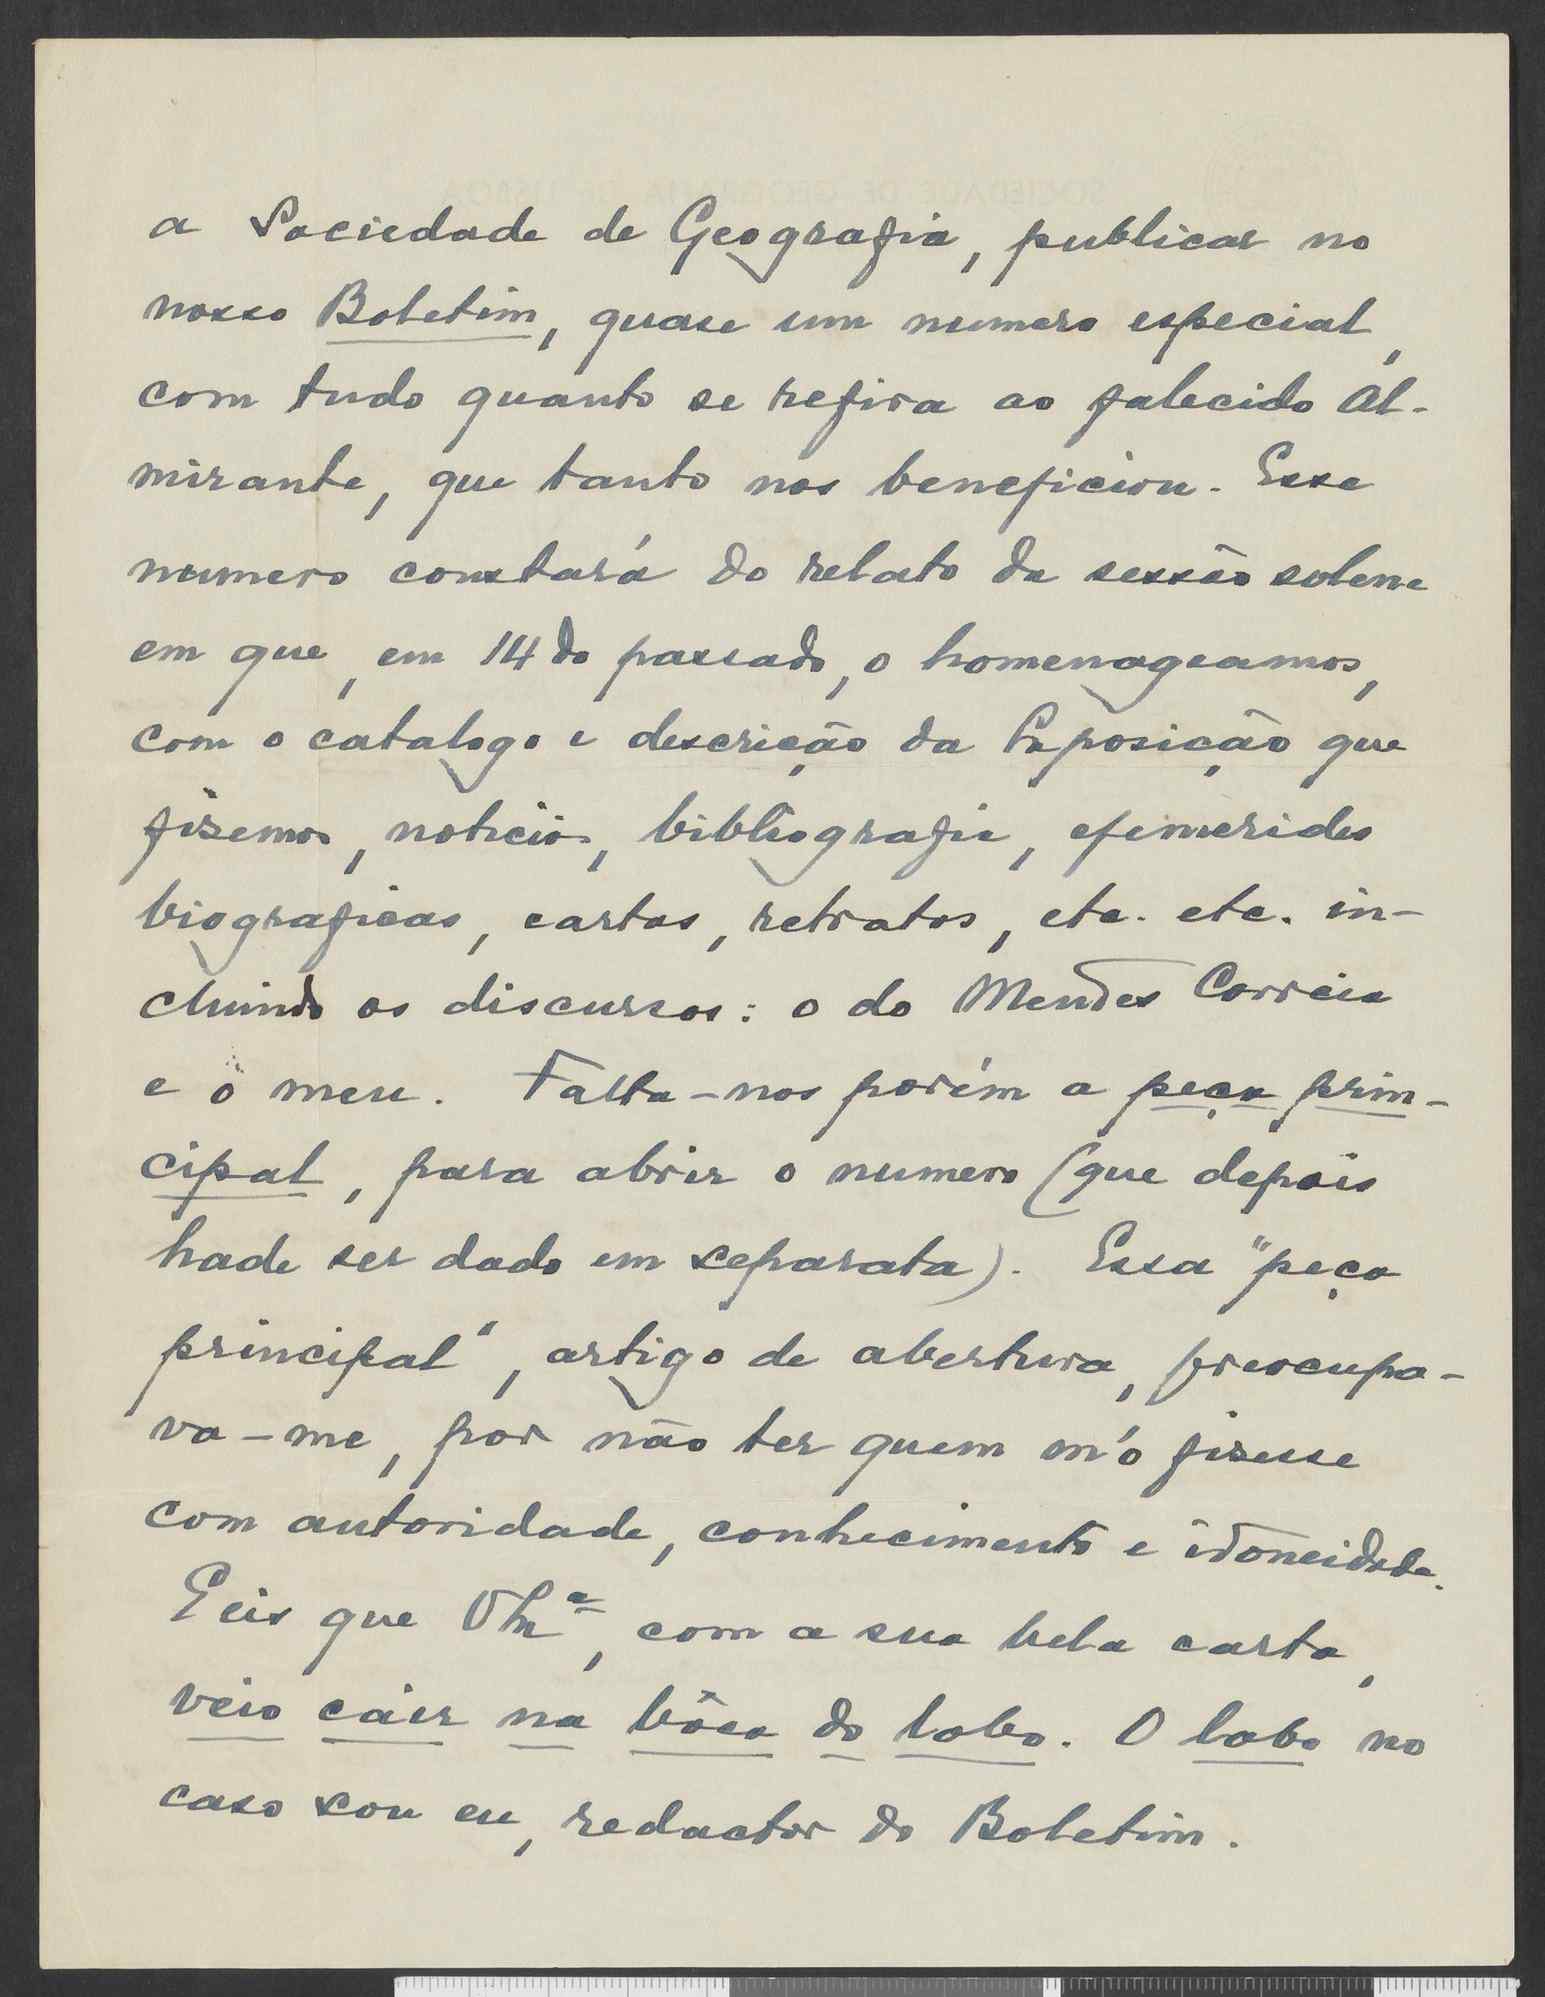 a Sociedade de Geografia, publicar no
nosso Boletim, quase um numero especial,
com tudo quanto se refira ao falecido Al-
mirante, que tanto nos beneficiou. Esse
numero constará do relato da sessão solene
em que, em 14 do passado, o homenageamos,
com o catalogo e descrição da Exposição que
fizemos, noticias, bibliografia, efemerides
biograficas, cartas, retratos, etc. etc. in-
cluindo os discursos: o do Mendes Correia
e o meu. Falta-nos porém a peça prin-
cipal, para abrir o numero (que depois
hade ser dado em separata). Essa "peça
principal", artigo de abertura, preocupa-
va-me, por não ter quem m'o fizesse
com autoridade, conhecimento e idoneidade.
E eis que V. Exª, com a sua bela carta,
veio caír na bôca do lobo. O lobo no
caso sou eu, redactor do Boletim.
SOCIEDADE DE GEOGRAFIA DE LISBOA